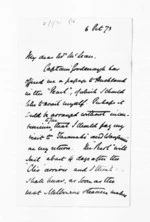 6 Oct 73
My dear Mr McLean,
Captain Goodenough has
offered me a passage to Auckland
in the "Pearl", of which I should
like to avail myself. Perhaps it
could be arranged without incon-
that I should pay my
visit to Taranaki
on my return. The Pearl will
sail about 6 days after the
arrives and I think I
shall leave, as soon as the
next Melbourne steamer makes